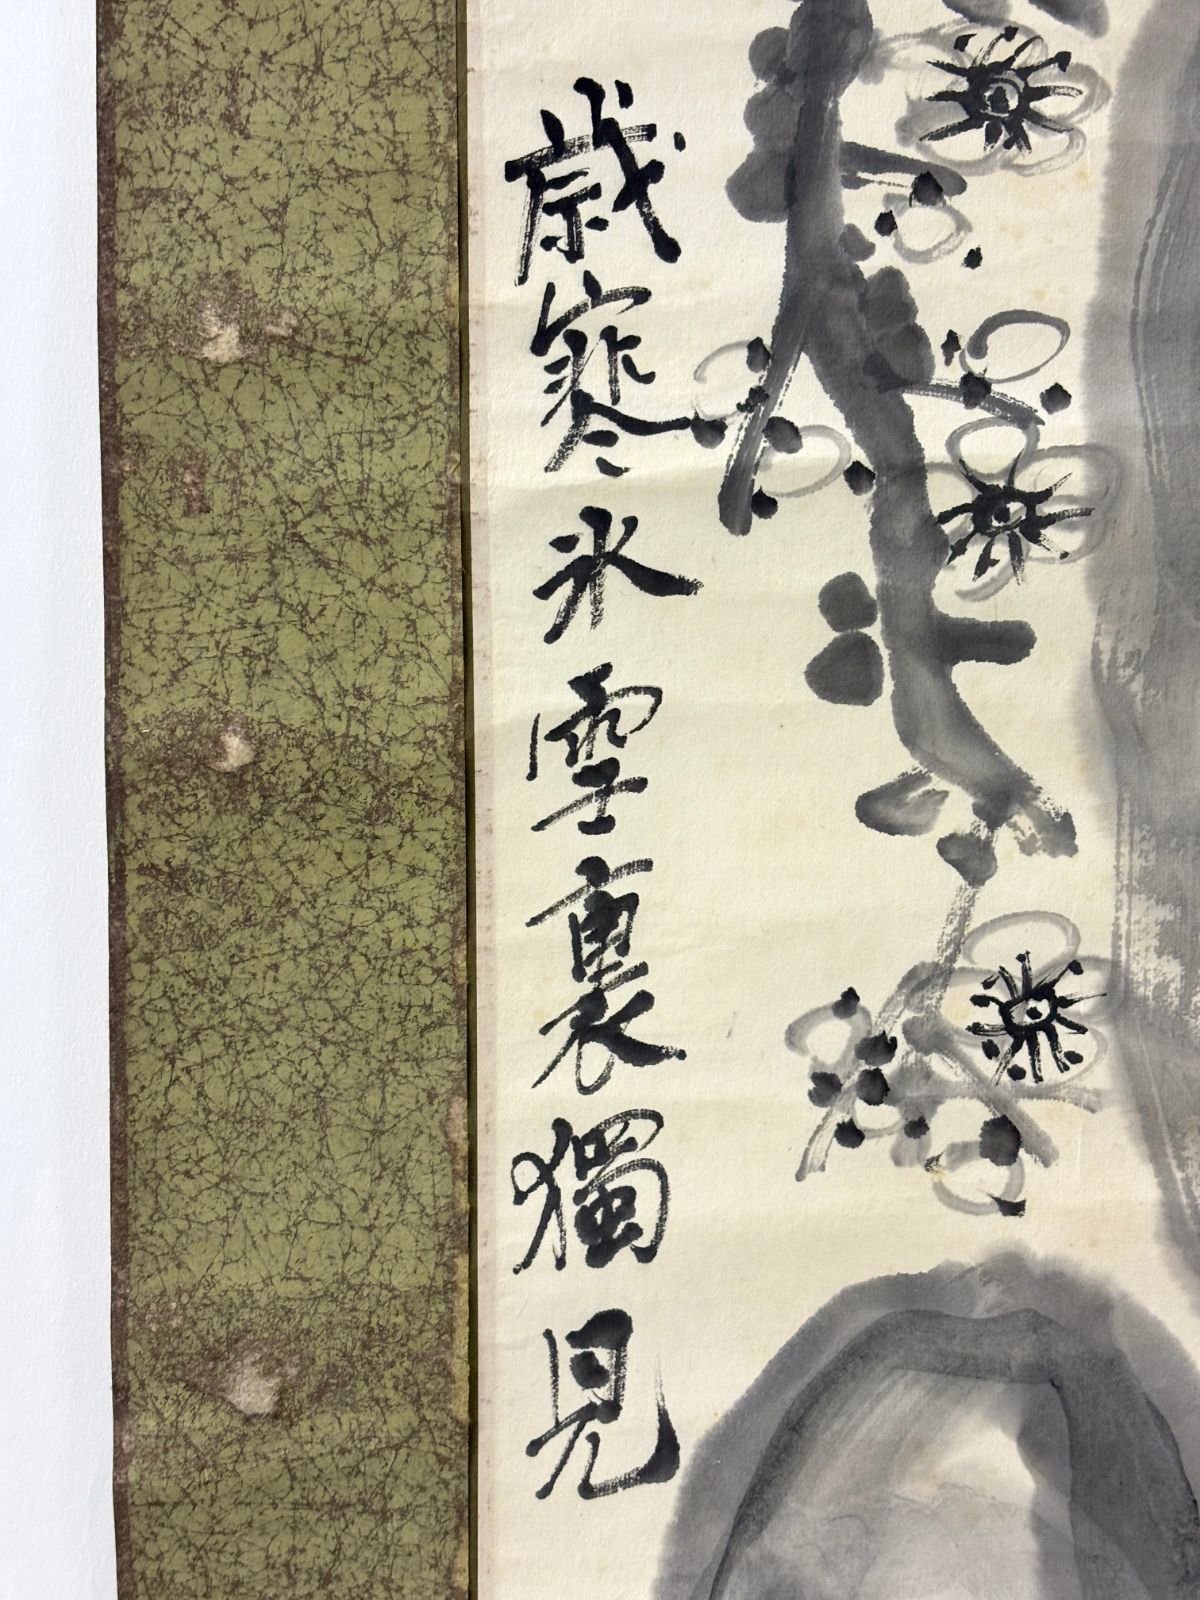 歳寒氷雪裏獨見